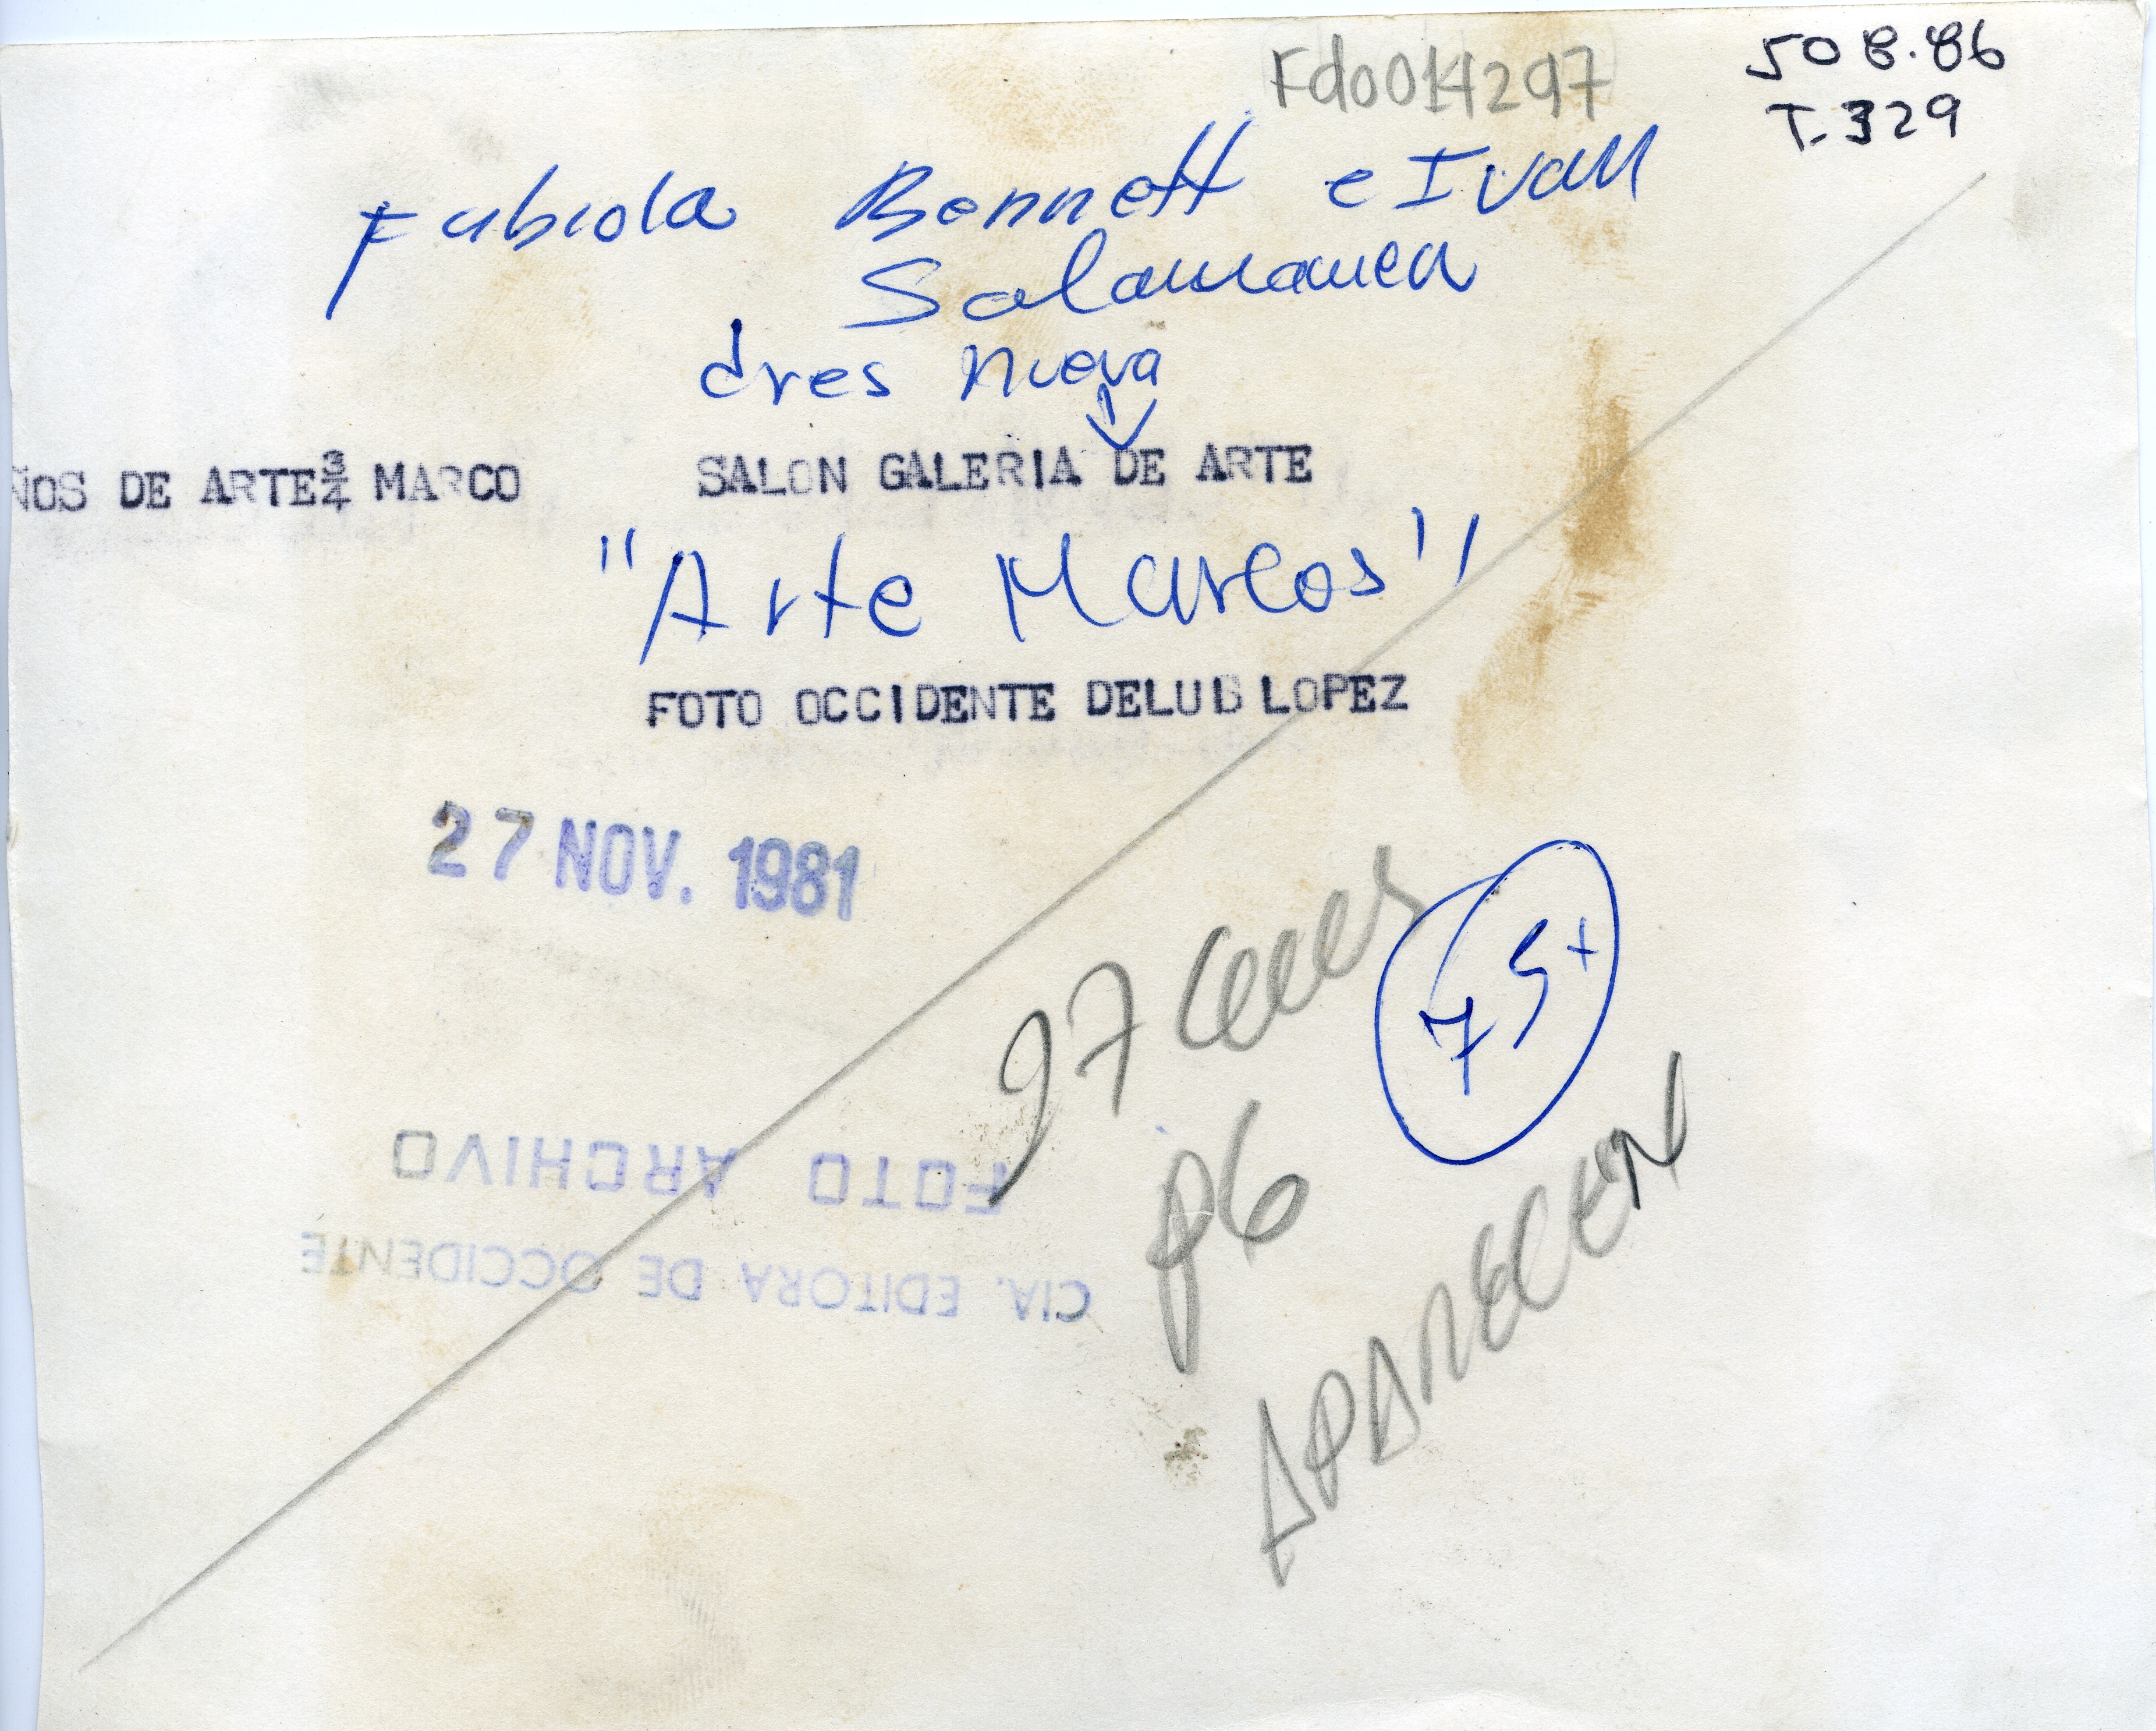 Fd0014297
508.86
T-329
Fabiola Bennett e Ivan
Salamanca
dres nueva
ÑOS DE ARTE¾ MARCO
SALON GALERIA DE ARTE
"Arte Marcos"
FOTO OCCIDENTE DELUIS LOPEZ
27 NOV. 1981
97
75+
p6
APARECEN
FOTO ARCHIVO
CIA. EDITORA DE OCCIDENTE